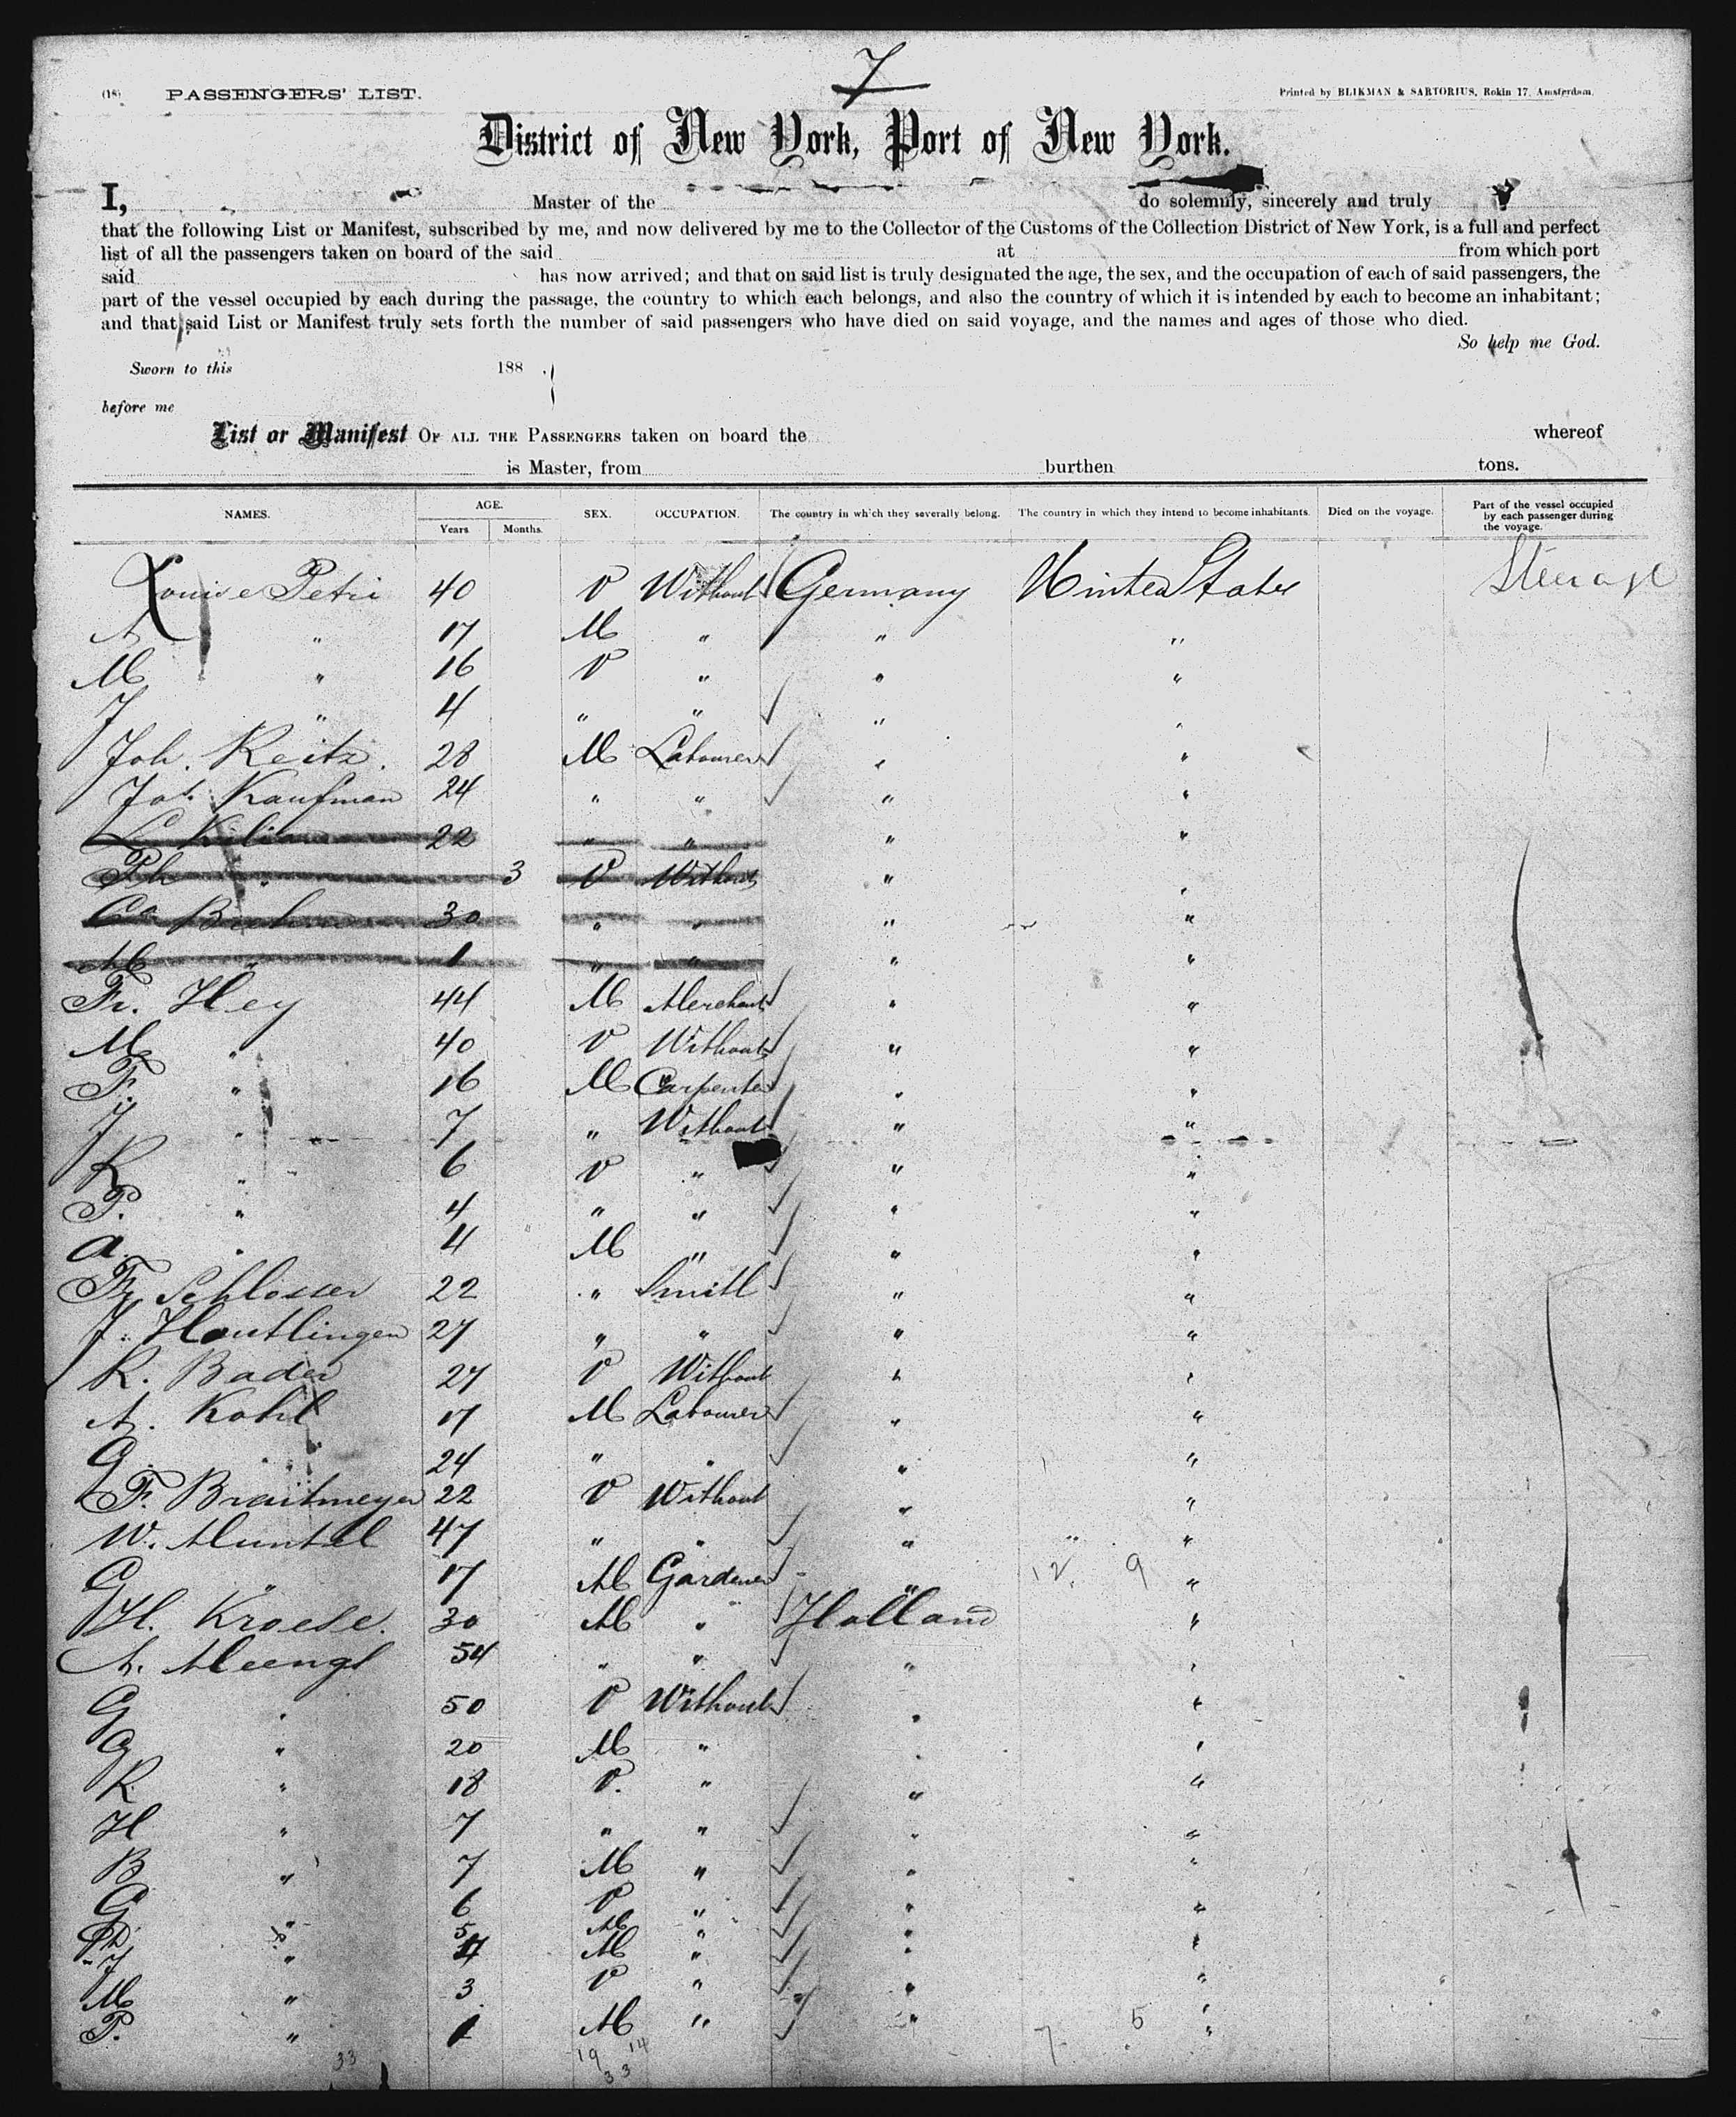 7
(18) PASSENGERS' LIST. Printed by BLIKMAN & SARTORIUS, Rokin 17, Amsterdam.
District of New York, Port of New York.
I, Master of the do solemnly, sincerely and truly
that the following List or Manifest, subscribed by me, and now delivered by me to the Collector of the Customs of the Collection District of New York, is a full and perfect
list of all the passengers taken on board of the said at from which port
said has now arrived; and that on said list is truly designated the age, the sex, and the occupation of each of said passengers, the
part of the vessel occupied by each during the passage, the country to which each belongs, and also the country of which it is intended by each to become an inhabitant;
and that said List or Manifest truly sets forth the number of said passengers who have died on said voyage, and the names and ages of those who died.
So help me God.
Sworn to this 188 .
before me
List or Manifest OF ALL THE PASSENGERS taken on board the whereof
is Master, from burthen tons.
NAMES. AGE. Years Months. SEX. OCCUPATION. The country in which they severally belong. The country in which they intend to become inhabitants. Died on the voyage. Part of the vessel occupied by each passenger during the voyage.
Louise Petri 40 V Without Germany Uniten States Steerage
A " 17 M " " "
M " 16 V " " "
J " 4 " " " "
Joh. Reitz. 28 M Labourer " "
Jos. Kaufman 24 " " " "
L Kilian 22 " " " "
Ph " 3 V Without " "
30 " " " "
M " 1 " " " "
Fr. Hey 44 M Merchant " "
M " 40 V Without " "
F. " 16 M Carpenter " "
J " 7 " Without " "
K " 6 V " " "
P. " 4 " " " "
A. " 4 M " " "
Fr Schlosser 22 " Smitl " "
J. Houtlingen 27 " " " "
R. Bader 27 V Without " "
A. Kohl 17 M Labourer " "
G. " 24 " " " "
F. Braitmeyer 22 V Without " "
W. Muntel 47 " " " "
G " 17 M Gardener " 12. 9 "
H. Kroese. 30 M " Holland "
A. Meengs 54 " " " "
G " 50 V Without " "
G " 20 M " " "
K " 18 V. " " "
H " 7 " " " "
B " 7 M " " "
G " 6 V " " "
D " 5 M " " "
J " 4 M " " "
M " 3 V " " "
P. " 1 M " " 7 5 "
33 19 14
33